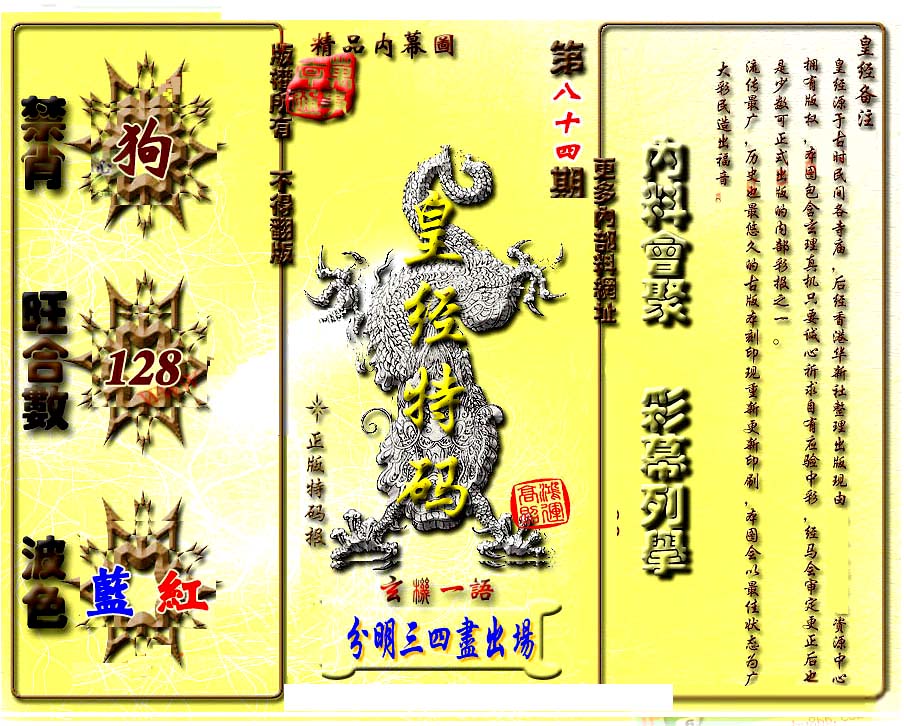 精品内幕圖
版權所有 不得翻版
禁肖
狗
旺合數
128
波色
藍 紅
第八十四期
更多內部料網址
皇经特码
正版特码报
鴻運高照
玄機一語
分明三四盡出場
內料會聚
彩幕列舉
皇经备注
皇经源于古时民间各寺庙，后经香港华新社整理出版现由 资源中心
拥有版权，本图包含玄理真机只要诚心祈求自有应验中彩，经马会审定更正后也
是少数可正式出版的内部彩报之一。
流传最广，历史也最悠久的古版本刻印现重新更新印刷，本图会以最佳状态为广
大彩民造出福音